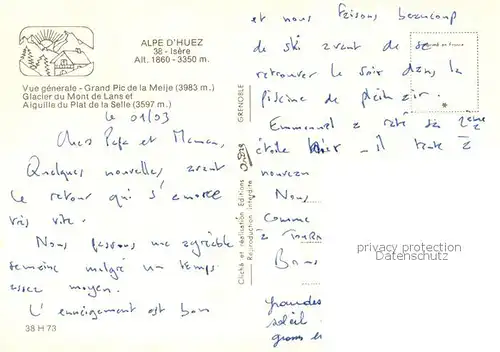 ALPE D'HUEZ
38 - Isère
Alt. 1860 - 3350 m.
Vue générale - Grand Pic de la Meije (3983 m.)
Glacier du Mont de Lans et
Aiguille du Plat de la Selle (3597 m.)
le 01/03
Chers Papa et Maman,
Quelques nouvelles avant
le retour qui s'amorce
très vite.
Nous passons une agréable
semaine malgré un temps
assez moyen.
L'enseignement est bon
38 H 73
GRENOBLE
Cliché et réalisation Editions
Reproduction interdite
et nous faisons beaucoup
de ski avant de se
retrouver le soir dans la
piscine de plein air.
Emmanuel a raté sa 2ème
étoile hier - il tente à
nouveau
Nous
comme
à
Bons
grandes
soleil
gros et
privacy protection
Datenschutz